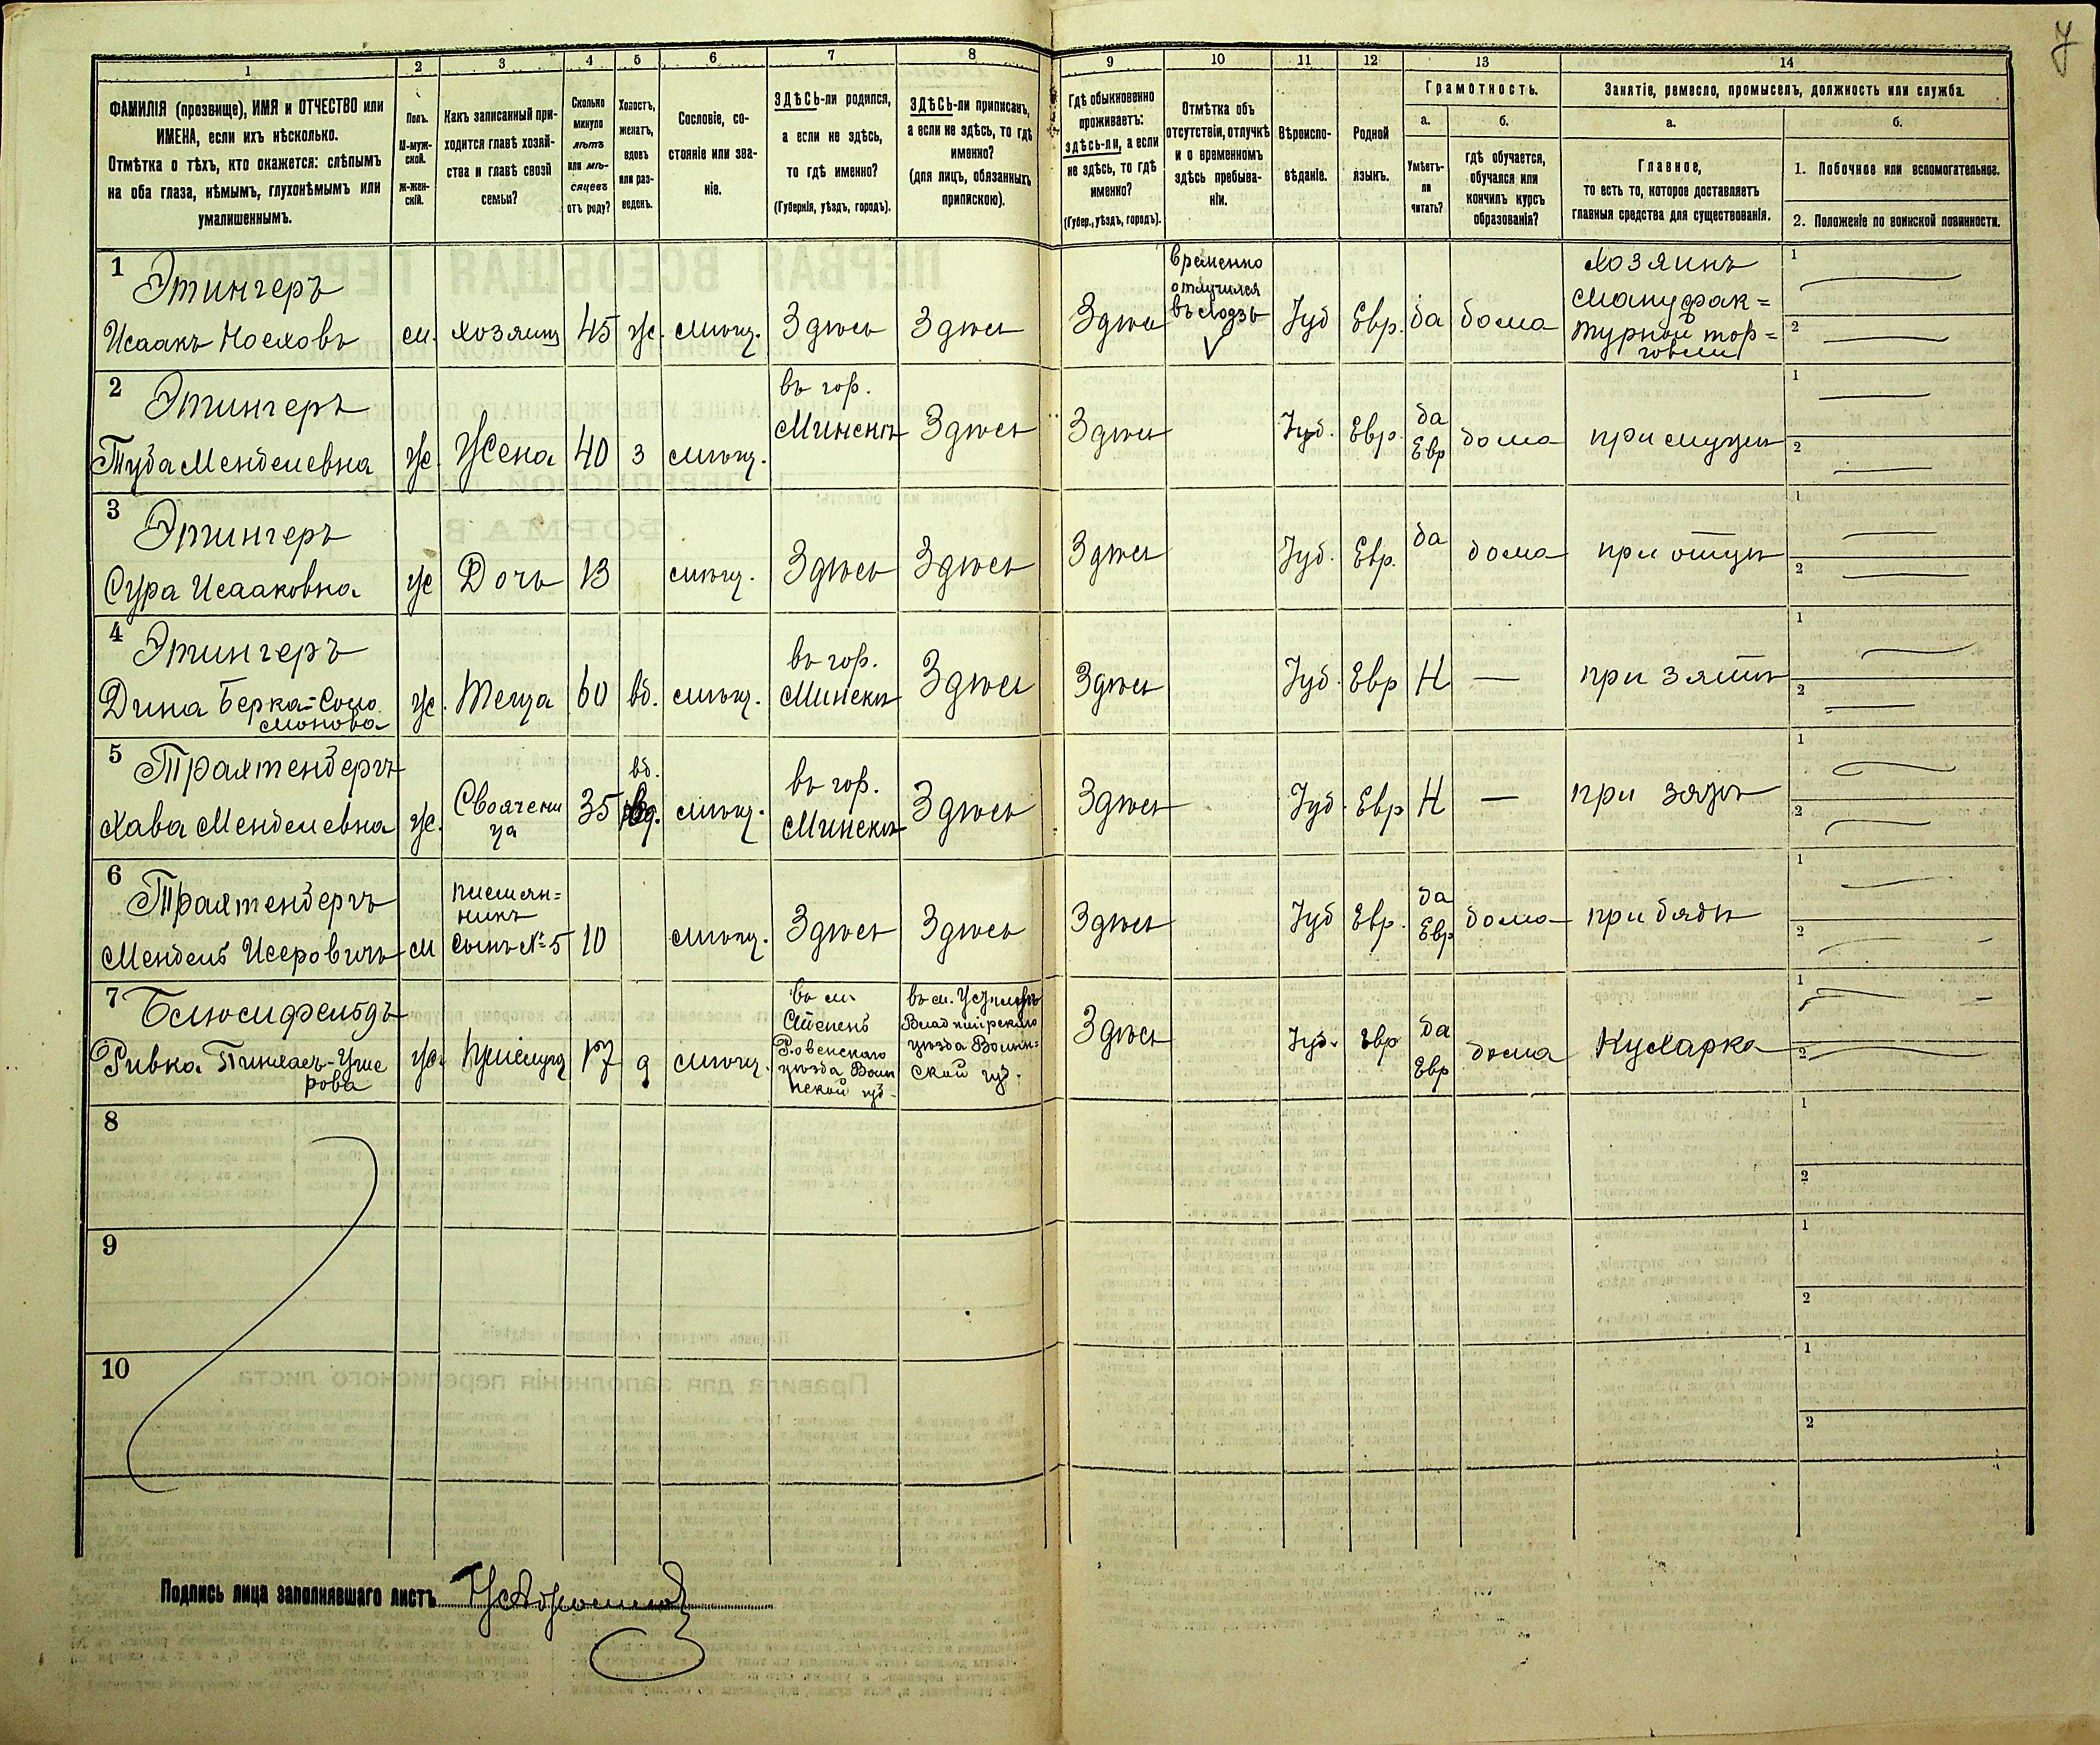 7
1 2 3 4 5 6 7 8 9 10 11 12 13 14
ФАМИЛІЯ (прозвище), ИМЯ и ОТЧЕСТВО или
ИМЕНА, если ихъ нѣсколько.
Отмѣтка о тѣхъ, кто окажется: слѣпымъ
на оба глаза, нѣмымъ, глухонѣмымъ или
умалишеннымъ.
Полъ.
М-муж-
ской.
Ж-жен-
скій.
Какъ записанный при-
ходится главѣ хозяй-
ства и главѣ своей
семьи?
Сколько
минуло
лѣтъ
или мѣ-
сяцевъ
отъ роду?
Холостъ,
женатъ,
вдовъ
или раз-
веденъ.
Сословіе, со-
стояніе или зва-
ніе.
ЗДѢСЬ-ли родился,
а если не здѣсь,
то гдѣ именно?
(Губернія, уѣздъ, городъ).
ЗДѢСЬ-ли приписанъ,
а если не здѣсь, то гдѣ
именно?
(для лицъ, обязанныхъ
припискою).
Гдѣ обыкновенно
проживаетъ:
здѣсь-ли, а если
не здѣсь, то гдѣ
именно?
(Губер., уѣздъ, городъ).
Отмѣтка объ
отсутствіи, отлучкѣ
и о временномъ
здѣсь пребыва-
ніи.
Вѣроиспо-
вѣданіе.
Родной
языкъ.
Грамотность.
а.
Умѣетъ-
ли
читать?
б.
гдѣ обучается,
обучался или
кончилъ курсъ
образованія?
Занятіе, ремесло, промыселъ, должность или служба.
а.
Главное,
то есть то, которое доставляетъ
главныя средства для существованія.
б.
1. Побочное или вспомогательное.
2. Положеніе по воинской повинности.
1 Этингеръ
Исаакъ Носховъ м. хозяинъ 45 ж. мѣщ. Здѣсь Здѣсь Здѣсь
временно
отлучился
въ Лодзь
Іуд Евр. да дома
Хозяинъ
Мануфак=
турной тор=
говли
1
2
2 Этингеръ
Туба Менделевна ж. Жена 40 з мѣщ.
въ гор.
Минскѣ
Здѣсь Здѣсь Іуд. Евр.
да
Евр
дома при мужѣ
1
2
3 Этингеръ
Сура Исааковна ж Дочь 13 мѣщ. Здѣсь Здѣсь Здѣсь Іуд. Евр. да дома при отцѣ
1
2
4 Этингеръ
Дина Берка-Соло
монова
ж. Теща 60 вд. мѣщ.
въ гор.
Минскѣ
Здѣсь Здѣсь Іуд. Евр Н — при зятѣ
1
2
5 Трахтенбергъ
Хава Менделевна ж.
Своячени
ца
35 вд. мѣщ.
въ гор.
Минскѣ
Здѣсь Здѣсь Іуд. Евр Н — при зятѣ
1
2
6 Трахтенбергъ
Мендель Исеровичъ м
племян=
никъ
Сынъ №5
10 мѣщ. Здѣсь Здѣсь Здѣсь Іуд Евр.
да
Евр
дома при дядѣ
1
2
7 Блюмфельдъ
Ривка Пинхасъ-Ушe
рова
ж. Прислуга 17 д мѣщ.
въ м.
Степень
Ровенскаго
уѣзда Волын
нской губ.
въ м. Устилугъ
Владимірскаго
уѣзда Волын=
ской губ.
Здѣсь Іуд. Евр
да
Евр
дома Кухарка
1
2
8
1
2
9
1
2
10
1
2
Подпись лица заполнявшаго листъ